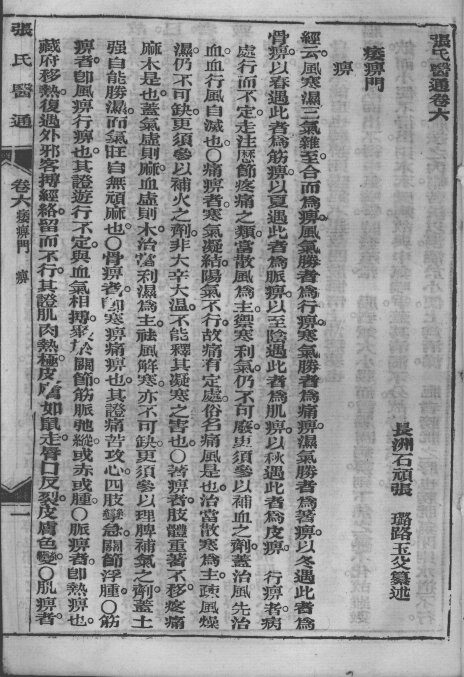 張氏醫通卷六
長洲石頑張　璐路玉父纂述
痿痹門
痹
經云。風寒濕三氣雜至。合而為痹。風氣勝者為行痹。寒氣勝者為痛痹。濕氣勝者為著痹。以冬遇此者為
骨痹。以春遇此者為筋痹。以夏遇此者為脈痹。以至陰遇此者為肌痹。以秋遇此者為皮痹。　行痹者。病
處行而不定。走注歷節疼痛之類。當散風為主。禦寒利氣。仍不可廢。更須參以補血之劑。蓋治風先治
血。血行風自滅也。○痛痹者。寒氣凝結。陽氣不行。故痛有定處。俗名痛風是也。治當散寒為主。疎風燥
濕。仍不可缺。更須參以補火之劑。非大辛大溫。不能釋其凝寒之害也。○著痹者。肢體重著不移。疼痛
麻木是也。蓋氣虛則麻。血虛則木。治當利濕為主。祛風解寒。亦不可缺。更須參以理脾補氣之劑。蓋土
强自能勝濕。而氣旺自無頑麻也。○骨痹者。即寒痹痛痹也。其證痛苦攻心。四肢攣急。關節浮腫。○筋
痹者。即風痹行痹也。其證遊行不定。與血氣相搏。聚於關節。筋脈弛縱。或赤或腫。○脈痹者。即熱痹也。
藏府移熱。復遇外邪。客搏經絡。留而不行。其證肌肉熱極。皮膚如鼠走。脣口反裂。皮膚色變。○肌痹者
張氏醫通
卷六　痿痹門　痹
一